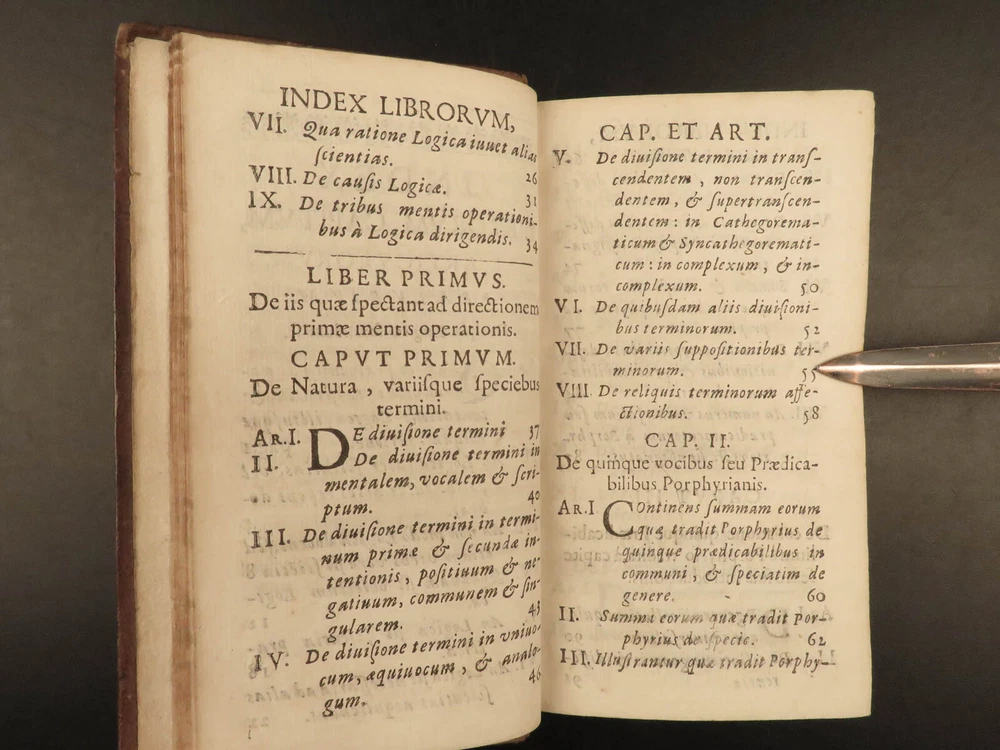 INDEX LIBRORVM,
VII. Qua ratione Logica iuuet alias
ſcientias. 26
VIII. De cauſis Logicæ. 31
IX. De tribus mentis operationi-
bus à Logica dirigendis. 34
LIBER PRIMVS.
De iis quæ ſpectant ad directionem
primæ mentis operationis.
CAPVT PRIMVM.
De Natura, variiſque ſpeciebus
termini.
Ar.I. DE diuiſione termini 37
II. De diuiſione termini in
mentalem, vocalem & ſcri-
ptum. 40
III. De diuiſione termini in termi-
num primæ & ſecundæ in-
tentionis, poſitiuum & ne-
gatiuum, communem & ſin-
gularem. 43
IV. De diuiſione termini in vniuo-
cum, æquiuocum, & analo-
gum. 46
CAP. ET ART.
V. De diuiſione termini in tranſ-
cendentem, non tranſcen-
dentem, & ſupertranſcen-
dentem: in Cathegorema-
ticum & Syncathegoremati-
cum: in complexum, & in-
complexum. 50
VI. De quibuſdam aliis diuiſioni-
bus terminorum. 52
VII. De variis ſuppoſitionibus ter-
minorum. 55
VIII. De reliquis terminorum affe-
ctionibus. 58
CAP. II.
De quinque vocibus ſeu Prædica-
bilibus Porphyrianis.
Ar.I COntinens ſummam eorum
quæ tradit Porphyrius de
quinque prædicabilibus in
communi, & ſpeciatim de
genere. 60
II. Summa eorum quæ tradit Por-
phyrius de ſpecie. 62
III. Illuſtrantur quæ tradit Porphy-